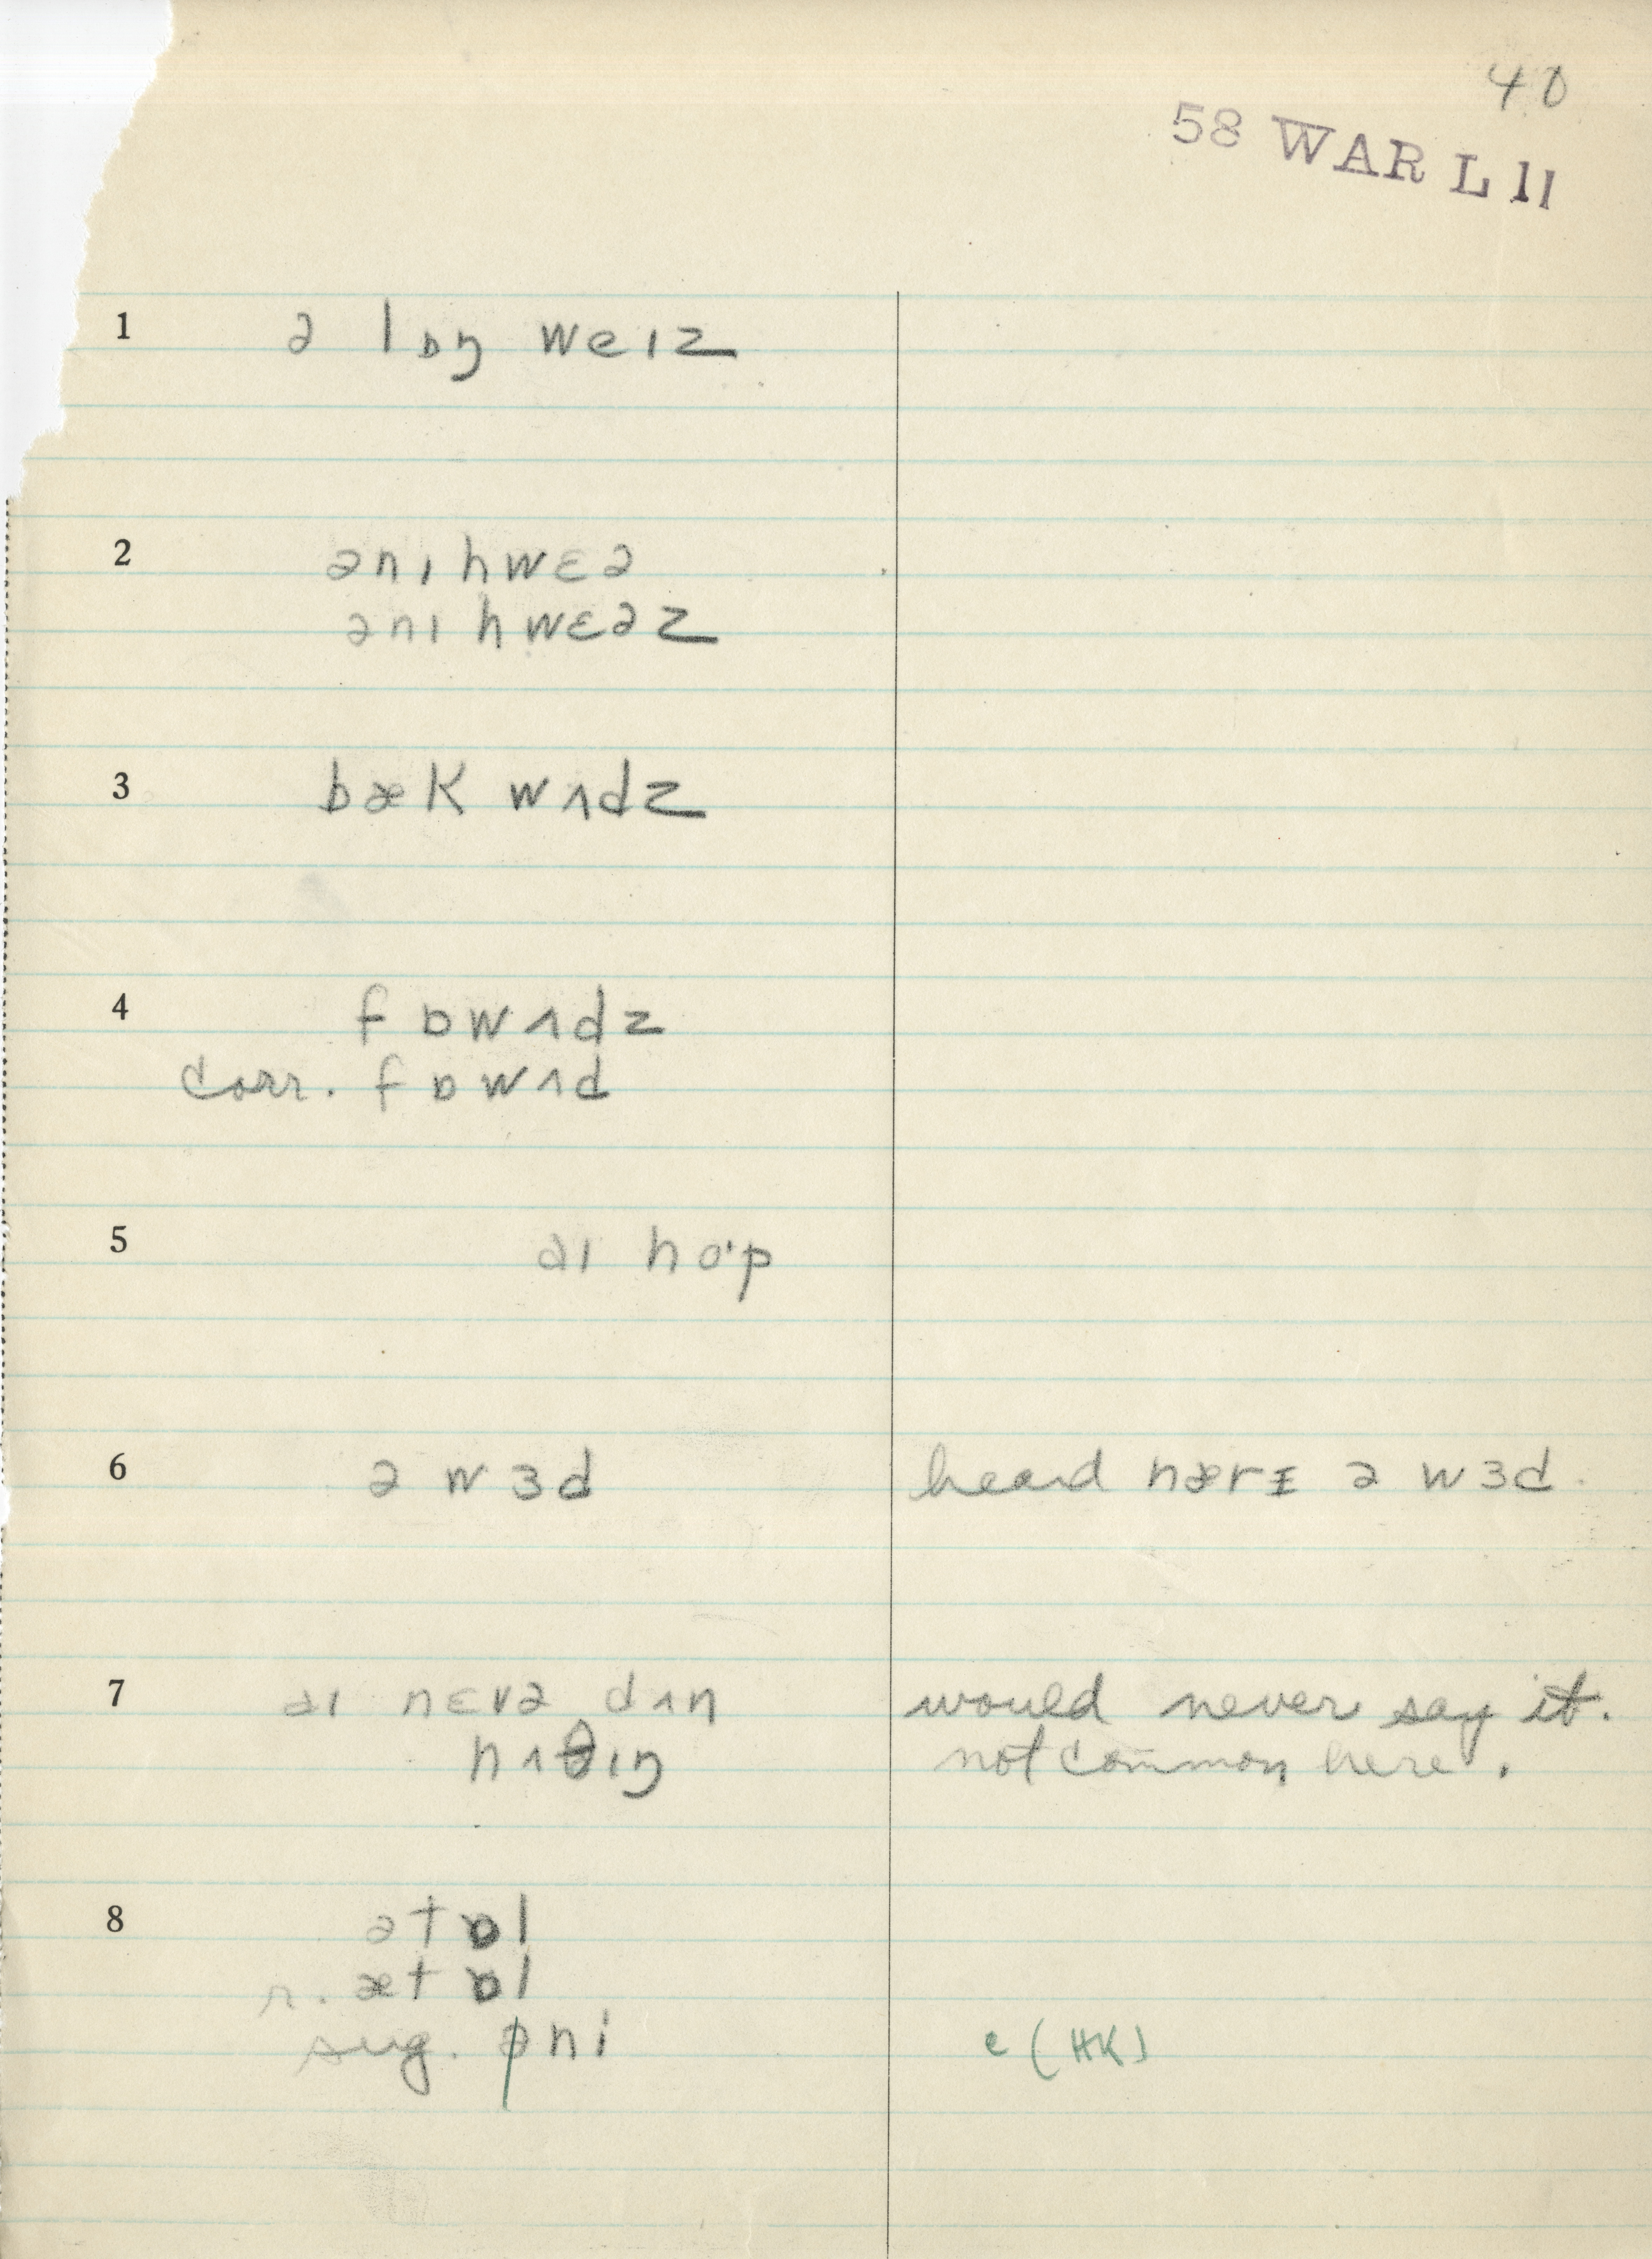 40
58 WAR L 11
1 ə lɒŋ weɪz
2 ənɪ hwɛə
ənɪ hwɛəz
3 bæk wʌdz
4 fɒwʌdz
corr. fɒwʌd
5 aɪ ho'p
6 ə wɜd heard nærɪ ə wɜd.
7 aɪ nɛvə dʌn would never say it.
nʌθɪŋ not common here.
8 ətɒl
r. ætɒl
sug. əni e (HK)